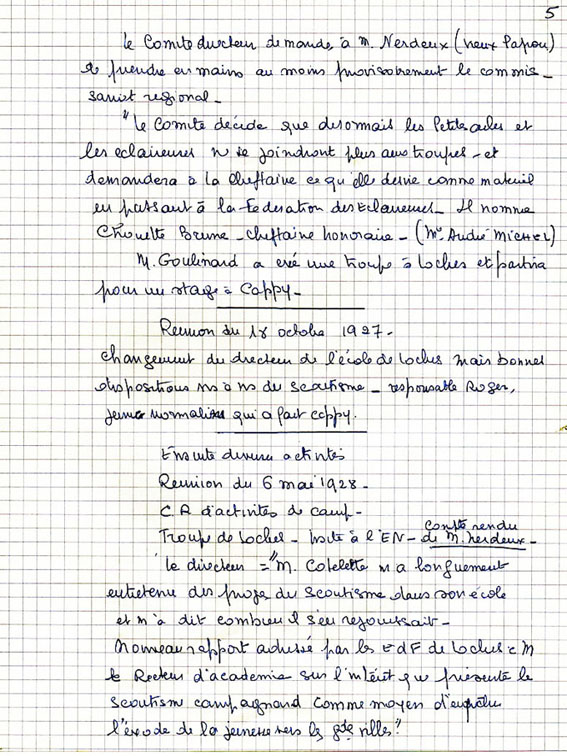 5
Le Comité directeur demande à M. Nerdeux (vieux Papou)
de prendre en mains au moins provisoirement le commis_
sariat regional_
"Le Comité décide que desormais les Petites ailes et
les eclaireuses n se joindront plus aux troupes - et
demandera à la Cheftaine ce qu'elle desire comme materiel
en passant à la Federation des Eclaireuses_ Il nomme
Chouette Brune - cheftaine honoraire - (Me André MICHEL)
M. Goulinard a créé une troupe à Loches et partira
pour un stage à Cappy_
Reunion du 18 octobre 1927-
changement du directeur de l'école de Loches mais bonnes
dispositions vis à vis du scoutisme - responsable Roger,
jeune normalien qui a fait cappy.
Ensuite divers activités
Reunion du 6 mai 1928-
C.R d'activites de camp-
Troupe de Loches - visite à l'EN - compte rendu
de M. Nerdeux-
le directeur = "M. Cotelette m a longuement
entretenu des progrès du scoutisme dans son école
et m'a dit combien il s'en rejouissait-
Nouveau rapport adressé par les E d F de Loches à M
le Recteur d'academie sur l'intérêt que présente le
scoutisme campagnard comme moyen d'
l'éxode de la jeunesse vers les gdes villes"